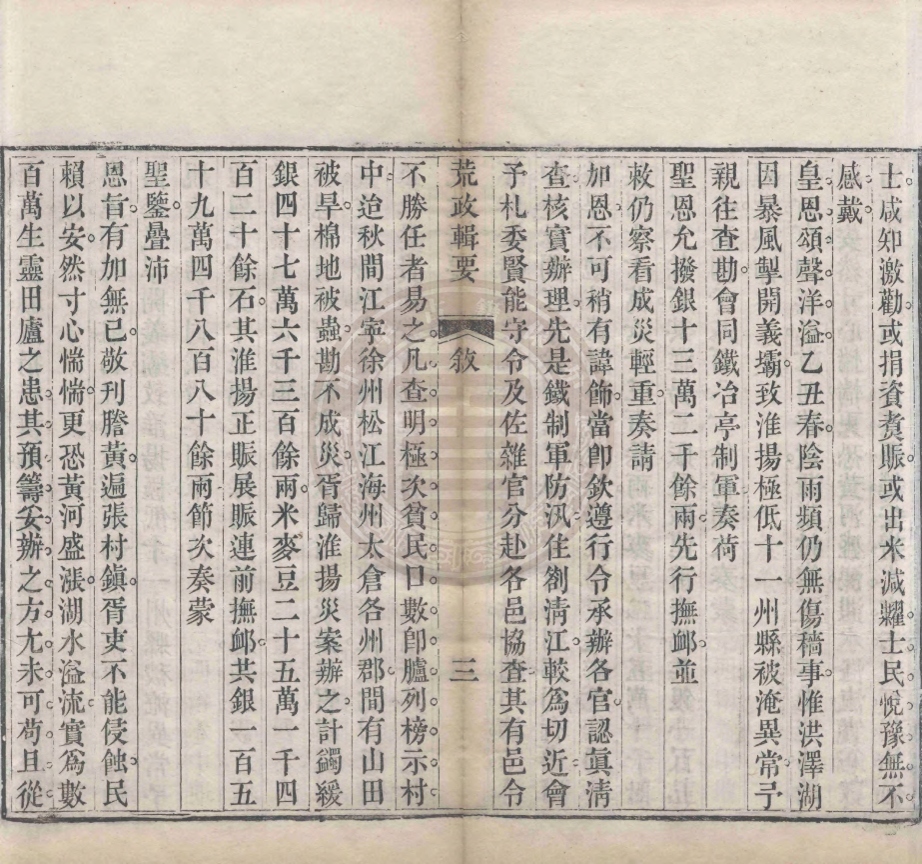 士咸知激勸。或捐資煑賑。或出米減糶。士民悅豫。無不
感戴
皇恩。頌聲洋溢。乙丑春。陰雨頻仍。無傷穡事。惟洪澤湖
因暴風掣開義壩。致淮揚極低十一州縣被淹異常。予
親往查勘。會同鐵冶亭制軍奏荷
聖恩。允撥銀十三萬二千餘兩。先行撫䘏。並
敕仍察看成災輕重。奏請
加恩。不可稍有諱飾。當卽欽遵行令承辦各官認眞淸
查。核實辦理。先是鐵制軍防汛住劄淸江。較爲切近。會
予札委賢能守令及佐雜官分赴各邑協查。其有邑令
荒政輯要 敘 三
不勝任者易之。凡查明極次貧民口數。卽臚列榜示村
中。迨秋間江寧徐州松江海州太倉各州郡。間有山田
被旱。棉地被蟲。勘不成災。胥歸淮揚災案辦之。計蠲緩
銀四十七萬六千三百餘兩。米麥豆二十五萬一千四
百二十餘石。其淮揚正賑展賑連前撫䘏。共銀一百五
十九萬四千八百八十餘兩。節次奏蒙
聖鑒。疊沛
恩旨。有加無已。敬刊謄黃。遍張村鎭。胥吏不能侵蝕。民
賴以安。然寸心惴惴。更恐黃河盛漲。湖水溢流。實爲數
百萬生靈田廬之患。其預籌妥辦之方。尤未可苟且從